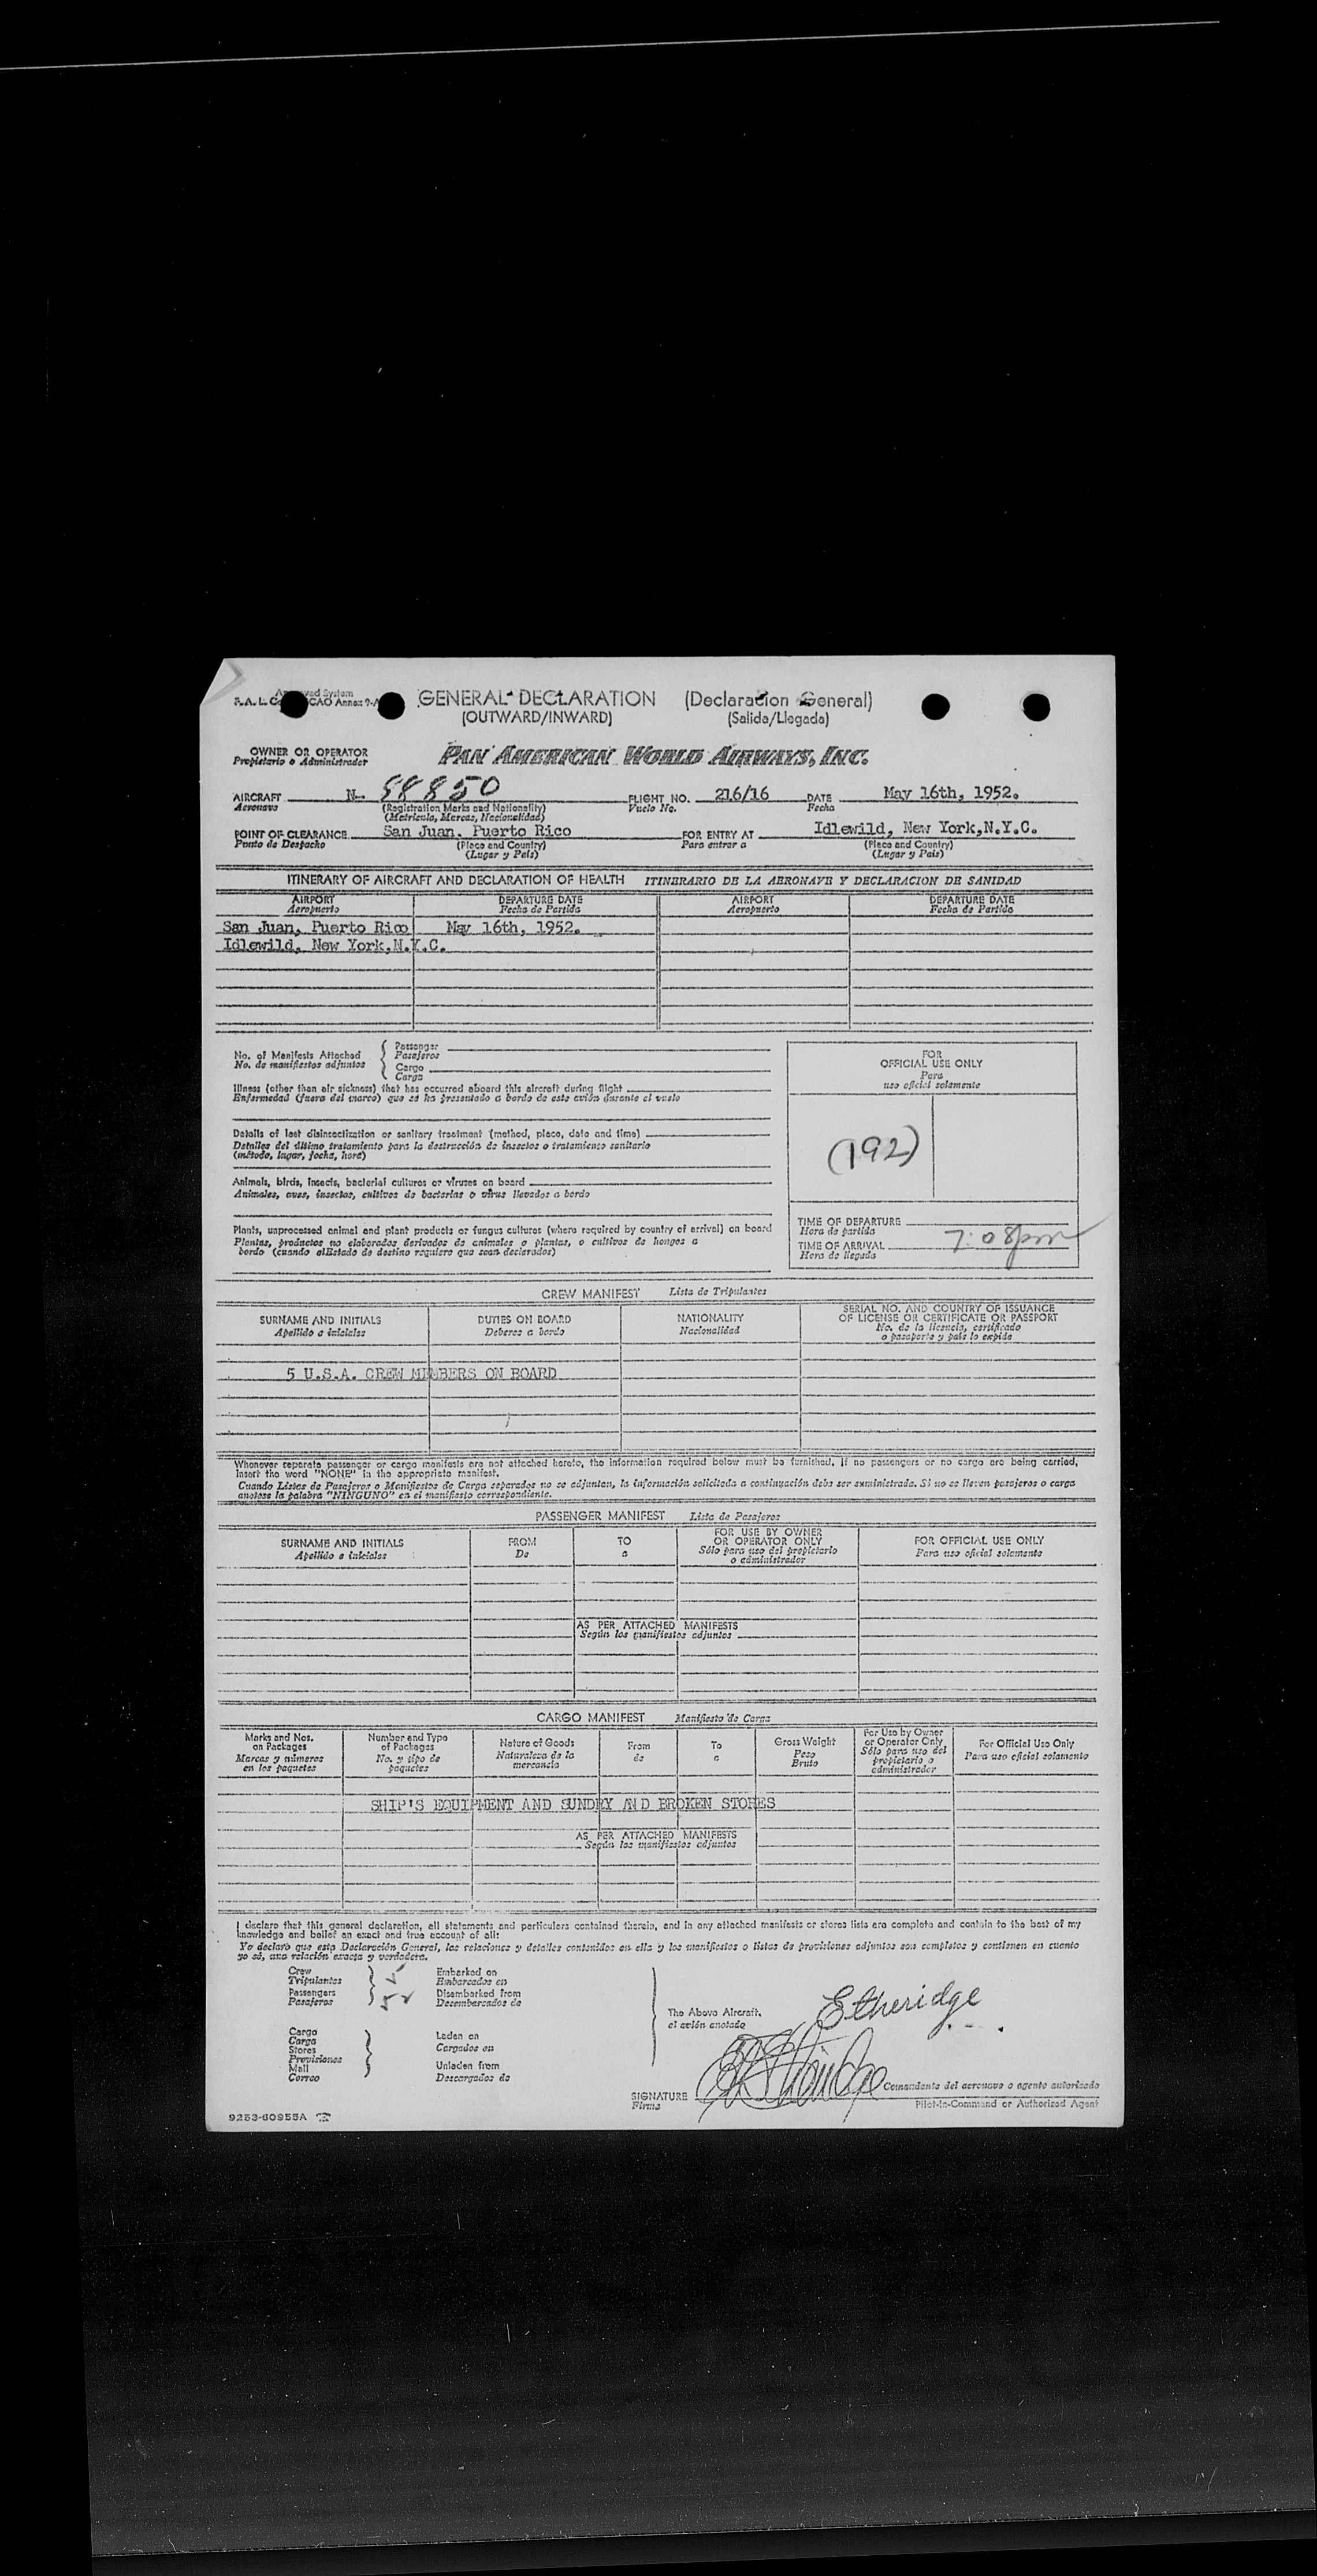 GENERAL DECLARATION (Declaración General)
(OUTWARD/INWARD) (Salida/Llegada)
OWNER OR OPERATOR PAN AMERICAN WORLD AIRWAYS, INC.
Propietario o Administrador
AIRCRAFT N- 88850 FLIGHT NO. 216/16 DATE May 16th, 1952.
Aeronave (Registration Marks and Nationality) Vuelo No. Fecha
(Matrícula, Marcas, Nacionalidad)
POINT OF CLEARANCE San Juan. Puerto Rico FOR ENTRY AT Idlewild, New York,N.Y.C.
Punto de Despacho (Place and Country) Para entrar a (Place and Country)
(Lugar y País) (Lugar y País)
ITINERARY OF AIRCRAFT AND DECLARATION OF HEALTH ITINERARIO DE LA AERONAVE Y DECLARACION DE SANIDAD
AIRPORT DEPARTURE DATE AIRPORT DEPARTURE DATE
Aeropuerto Fecha de Partida Aeropuerto Fecha de Partida
San Juan, Puerto Rico May 16th, 1952.
Idlewild, New York,N.Y.C.
No. of Manifests Attached { Passenger
No. de manifiestos adjuntos Pasajeros
Cargo
Carga
Illness (other than air sickness) that has occurred aboard this aircraft during flight
Enfermedad (fuera del mareo) que se ha presentado a bordo de este avión durante el vuelo
Details of last disinsectization or sanitary treatment (method, place, date and time)
Detalles del último tratamiento para la destrucción de insectos o tratamiento sanitario
(método, lugar, fecha, hora)
Animals, birds, insects, bacterial cultures or viruses on board
Animales, aves, insectos, cultivos de bacterias o virus llevados a bordo
Plants, unprocessed animal and plant products or fungus cultures (where required by country of arrival) on board
Plantas, productos no elaborados derivados de animales o plantas, o cultivos de hongos a
bordo (cuando elEstado de destino requiere que sean declarados)
FOR
OFFICIAL USE ONLY
Para
uso oficial solamente
(192)
TIME OF DEPARTURE
Hora de partida
TIME OF ARRIVAL 7:08pm
Hora de llegada
CREW MANIFEST Lista de Tripulantes
SURNAME AND INITIALS DUTIES ON BOARD NATIONALITY SERIAL NO. AND COUNTRY OF ISSUANCE
OF LICENSE OR CERTIFICATE OR PASSPORT
Apellido e iniciales Deberes a bordo Nacionalidad No. de la licencia, certificado
o pasaporte y país lo expide
5 U.S.A. CREW MEMBERS ON BOARD
Whenever separate passenger or cargo manifests are not attached hereto, the information required below must be furnished. If no passengers or no cargo are being carried,
insert the word "NONE" in the appropriate manifest.
Cuando Listas de Pasajeros o Manifiestos de Carga separados no se adjuntan, la información solicitada a continuación debe ser suministrada. Si no se lleven pasajeros o carga
anótese la palabra "NINGUNO" en el manifiesto correspondiente.
PASSENGER MANIFEST Lista de Pasajeros
SURNAME AND INITIALS FROM TO FOR USE BY OWNER FOR OFFICIAL USE ONLY
OR OPERATOR ONLY
Apellido e iniciales De a Sólo para uso del propietario Para uso oficial solamente
o administrador
AS PER ATTACHED MANIFESTS
Según los manifiestos adjuntos
CARGO MANIFEST Manifiesto de Carga
Marks and Nos. Number and Type Nature of Goods From To Gross Weight For Use by Owner For Official Use Only
on Packages of Packages or Operator Only
Marcas y números No. y tipo de Naturaleza de la de a Peso Sólo para uso del Para uso oficial solamente
en los paquetes paquetes mercancía Bruto propietario o
administrador
SHIP'S EQUIPMENT AND SUNDRY AND BROKEN STORES
AS PER ATTACHED MANIFESTS
Según los manifiestos adjuntos
I declare that this general declaration, all statements and particulars contained therein, and in any attached manifests or stores lists are complete and contain to the best of my
knowledge and belief an exact and true account of all:
Yo declaro que esta Declaración General, las relaciones y detalles contenidos en ella y los manifiestos o listas de provisiones adjuntos son completos y contienen en cuanto
yo sé, una relación exacta y verdadera.
Crew 5 Embarked on
Tripulantes Embarcados en
Passengers 52 Disembarked from
Pasajeros Desembarcados de
Cargo
Carga Laden on
Stores Cargados en
Provisiones
Mail Unladen from
Correo Descargados de
The Above Aircraft, Etheridge
el avión anotado
SIGNATURE Comandante del aeronave o agente autorizado
Firma Pilot-in-Command or Authorized Agent
9253-60955A